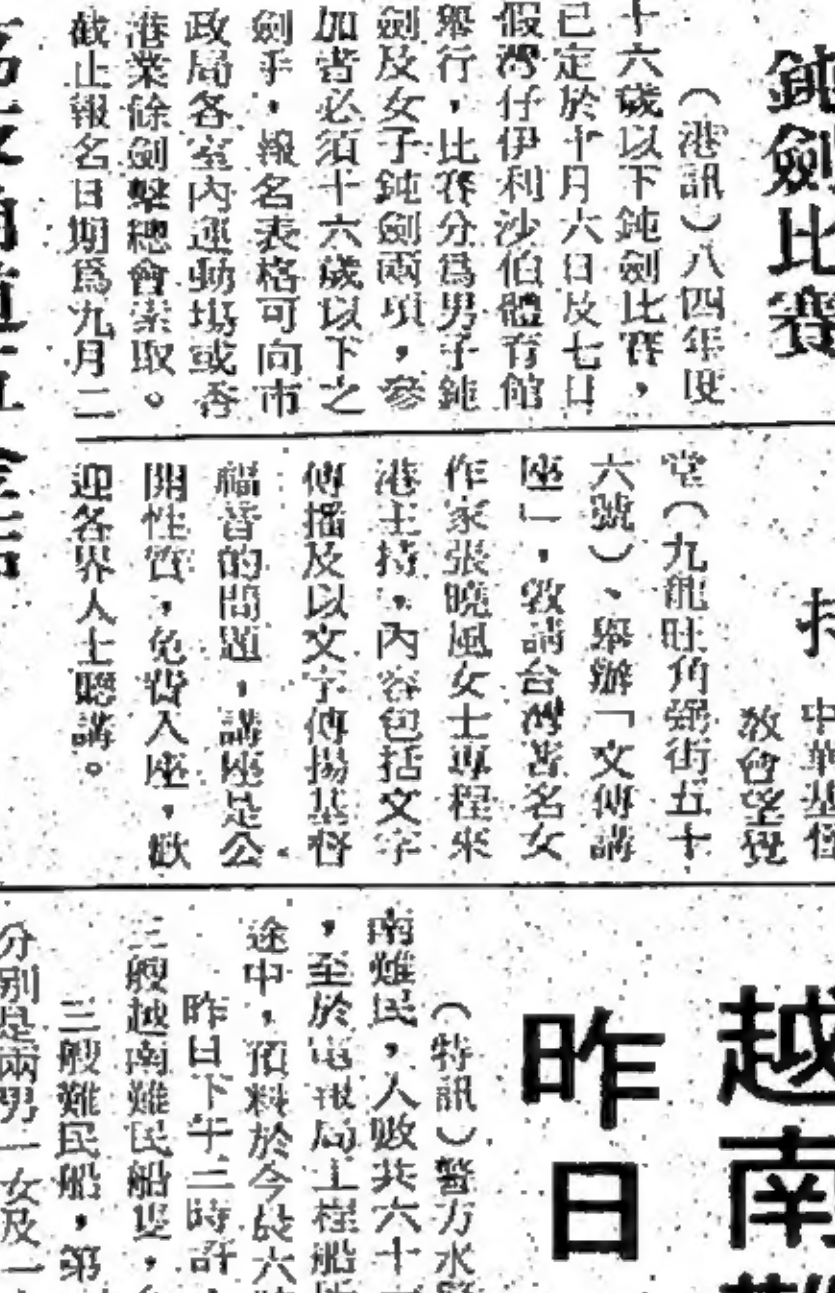 鈍劍比賽
（港訊）八四年度
十六歲以下鈍劍比賽，
已定於十月六日及七日
假灣仔伊利沙伯體育館
舉行，比賽分爲男子鈍
劍及女子鈍劍兩項，參
加者必須十六歲以下之
劍手，報名表格可向市
政局各室內運動場或香
港業餘劍擊總會索取。
截止報名日期爲九月二
持
中華基
教會望覺
堂（九龍旺角弼街五十
六號）、舉辦「文傳講
座」，敦請台灣著名女
作家張曉風女士專程來
港主持，內容包括文字
傳播及以文字傳揚基督
福音的問題，講座是公
開性質，免費入座，歡
迎各界人士聽講。
越南
昨日
（特訊）警方水
南難民，人數共六十
，至於電視局工程船
途中，預料於今晨六
昨日下午三時許
三艘越南難民船隻，
三艘難民船，第
分別是兩男一女及一